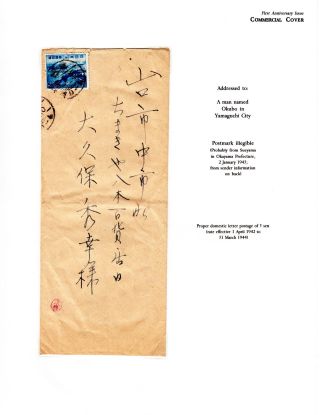 First Anniversary Issue
COMMERCIAL COVER
Addressed to:
A man named
Okubo in
Yamaguchi City
Postmark illegible
(Probably from Sueyama
in Okayama Prefecture,
2 January 1943;
from sender information
on back)
Proper domestic letter postage of 5 sen
(rate effective 1 April 1942 to
31 March 1944)
山口市中市町
ちまきや八木百貨店内
大久保秀幸様